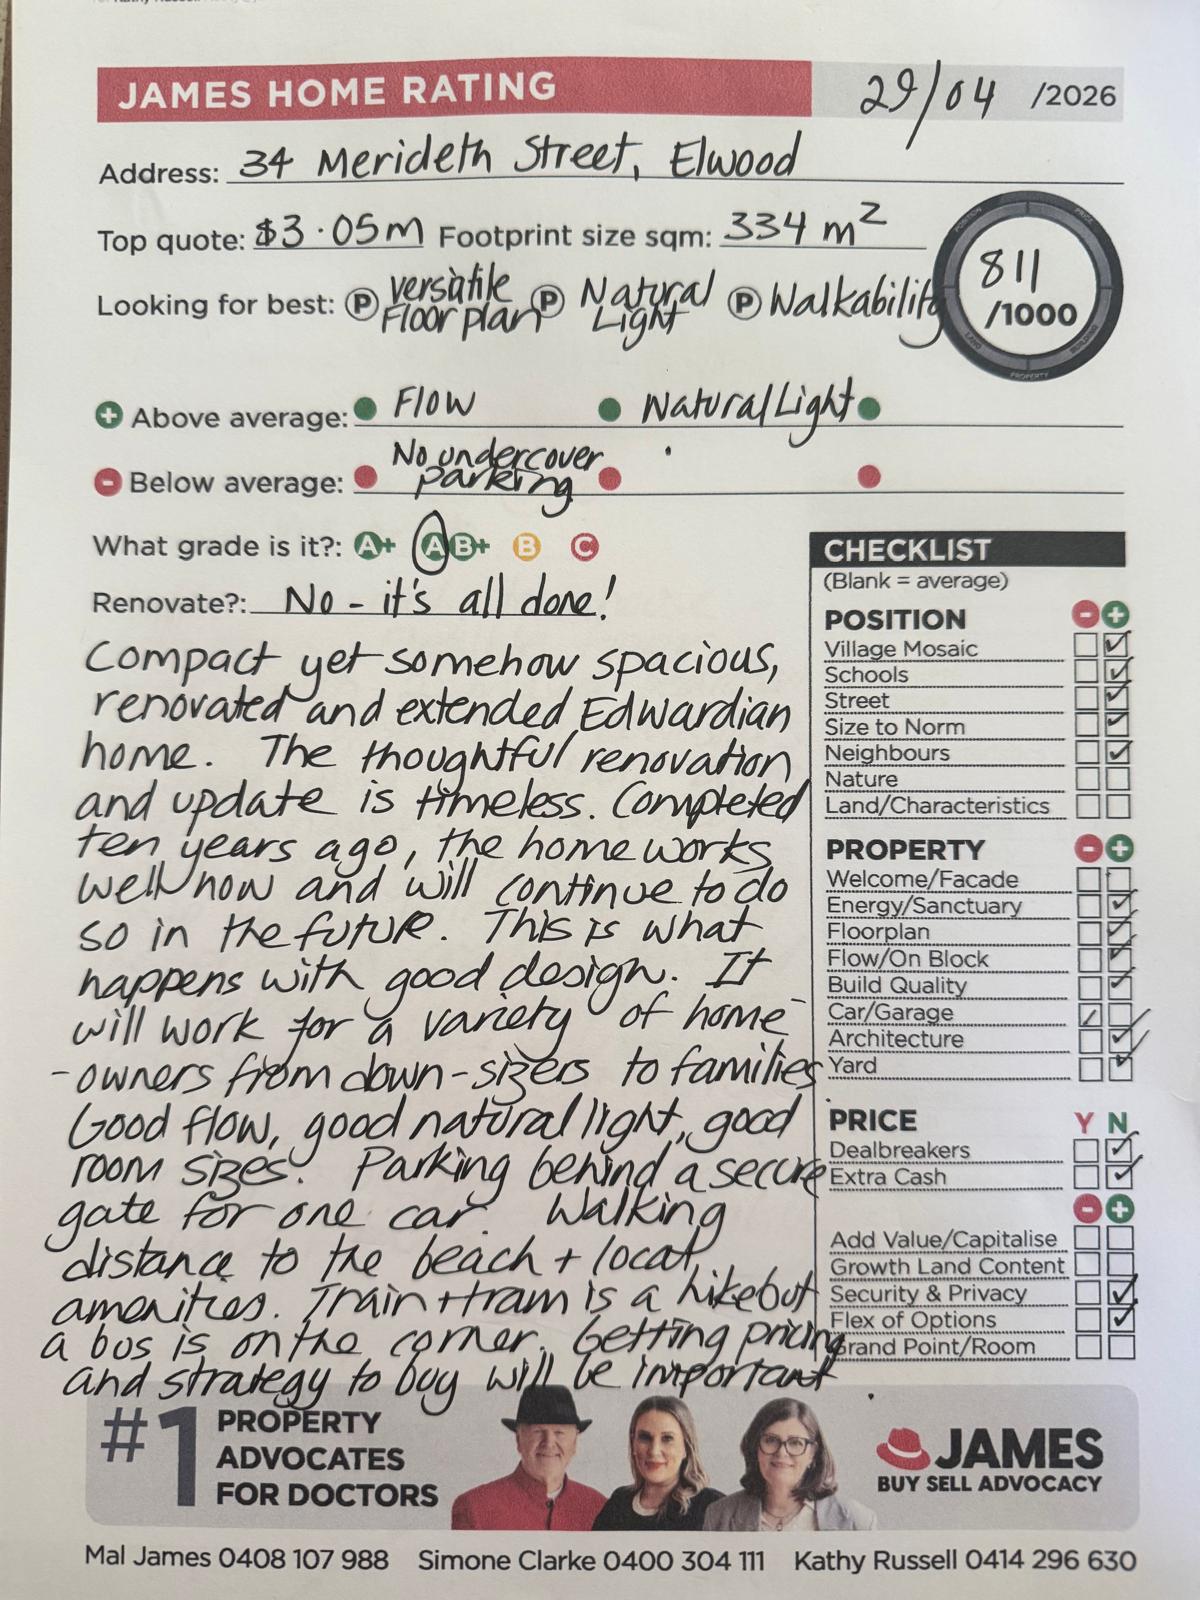 JAMES HOME RATING 29/04 /2026
Address: 34 Merideth Street, Elwood
Top quote: $3.05m Footprint size sqm: 334 m²
811
/1000
POSITION PRICE BUILDING PROPERTY LAND
Looking for best: P versatile Floorplan P Natural Light P Walkability
+ Above average: Flow Natural Light
- Below average: No undercover parking
What grade is it?: A+ A B+ B C
Renovate?: No - it's all done!
Compact yet somehow spacious,
renovated and extended Edwardian
home. The thoughtful renovation
and update is timeless. Completed
ten years ago, the home works
well now and will continue to do
so in the future. This is what
happens with good design. It
will work for a variety of home-
-owners from down-sizers to families.
Good flow, good natural light, good
room sizes. Parking behind a secure
gate for one car. Walking
distance to the beach + local
amenities. Train + tram is a hike but
a bus is on the corner. Getting pricing
and strategy to buy will be important.
CHECKLIST
(Blank = average)
POSITION - +
Village Mosaic
Schools
Street
Size to Norm
Neighbours
Nature
Land/Characteristics
PROPERTY - +
Welcome/Facade
Energy/Sanctuary
Floorplan
Flow/On Block
Build Quality
Car/Garage
Architecture
Yard
PRICE Y N
Dealbreakers
Extra Cash
- +
Add Value/Capitalise
Growth Land Content
Security & Privacy
Flex of Options
Grand Point/Room
#1 PROPERTY
ADVOCATES
FOR DOCTORS
JAMES
BUY SELL ADVOCACY
Mal James 0408 107 988 Simone Clarke 0400 304 111 Kathy Russell 0414 296 630